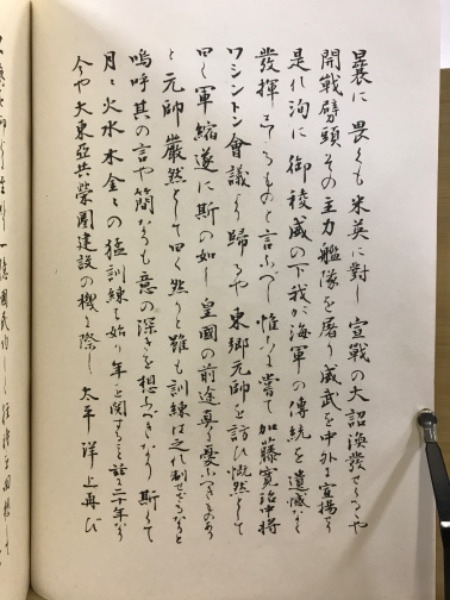 曩に 畏くも 米英に對し 宣戰の大詔渙發せらるや
開戰劈頭その主力艦隊を屠り威武を中外に宣揚す
是れ洵に 御稜威の下我が海軍の傳統を遺憾なく
發揮せるものと言ふべし 惟ふに嘗て 加藤寛治中將
ワシントン會議より歸るや 東郷元帥を訪ひ慨然として
曰く軍縮遂に斯の如し 皇國の前途真に憂ふべきものあり
と 元帥 嚴然として曰く 然りと雖も訓練は之れ制せざるなりと
嗚呼其の言や簡なるも意の深きを想ふべきなり 斯くて
月々火水木金々の猛訓練を始り年を閲すること茲に二十年なり
今や大東亞共榮圏建設の機に際し 太平洋上再び